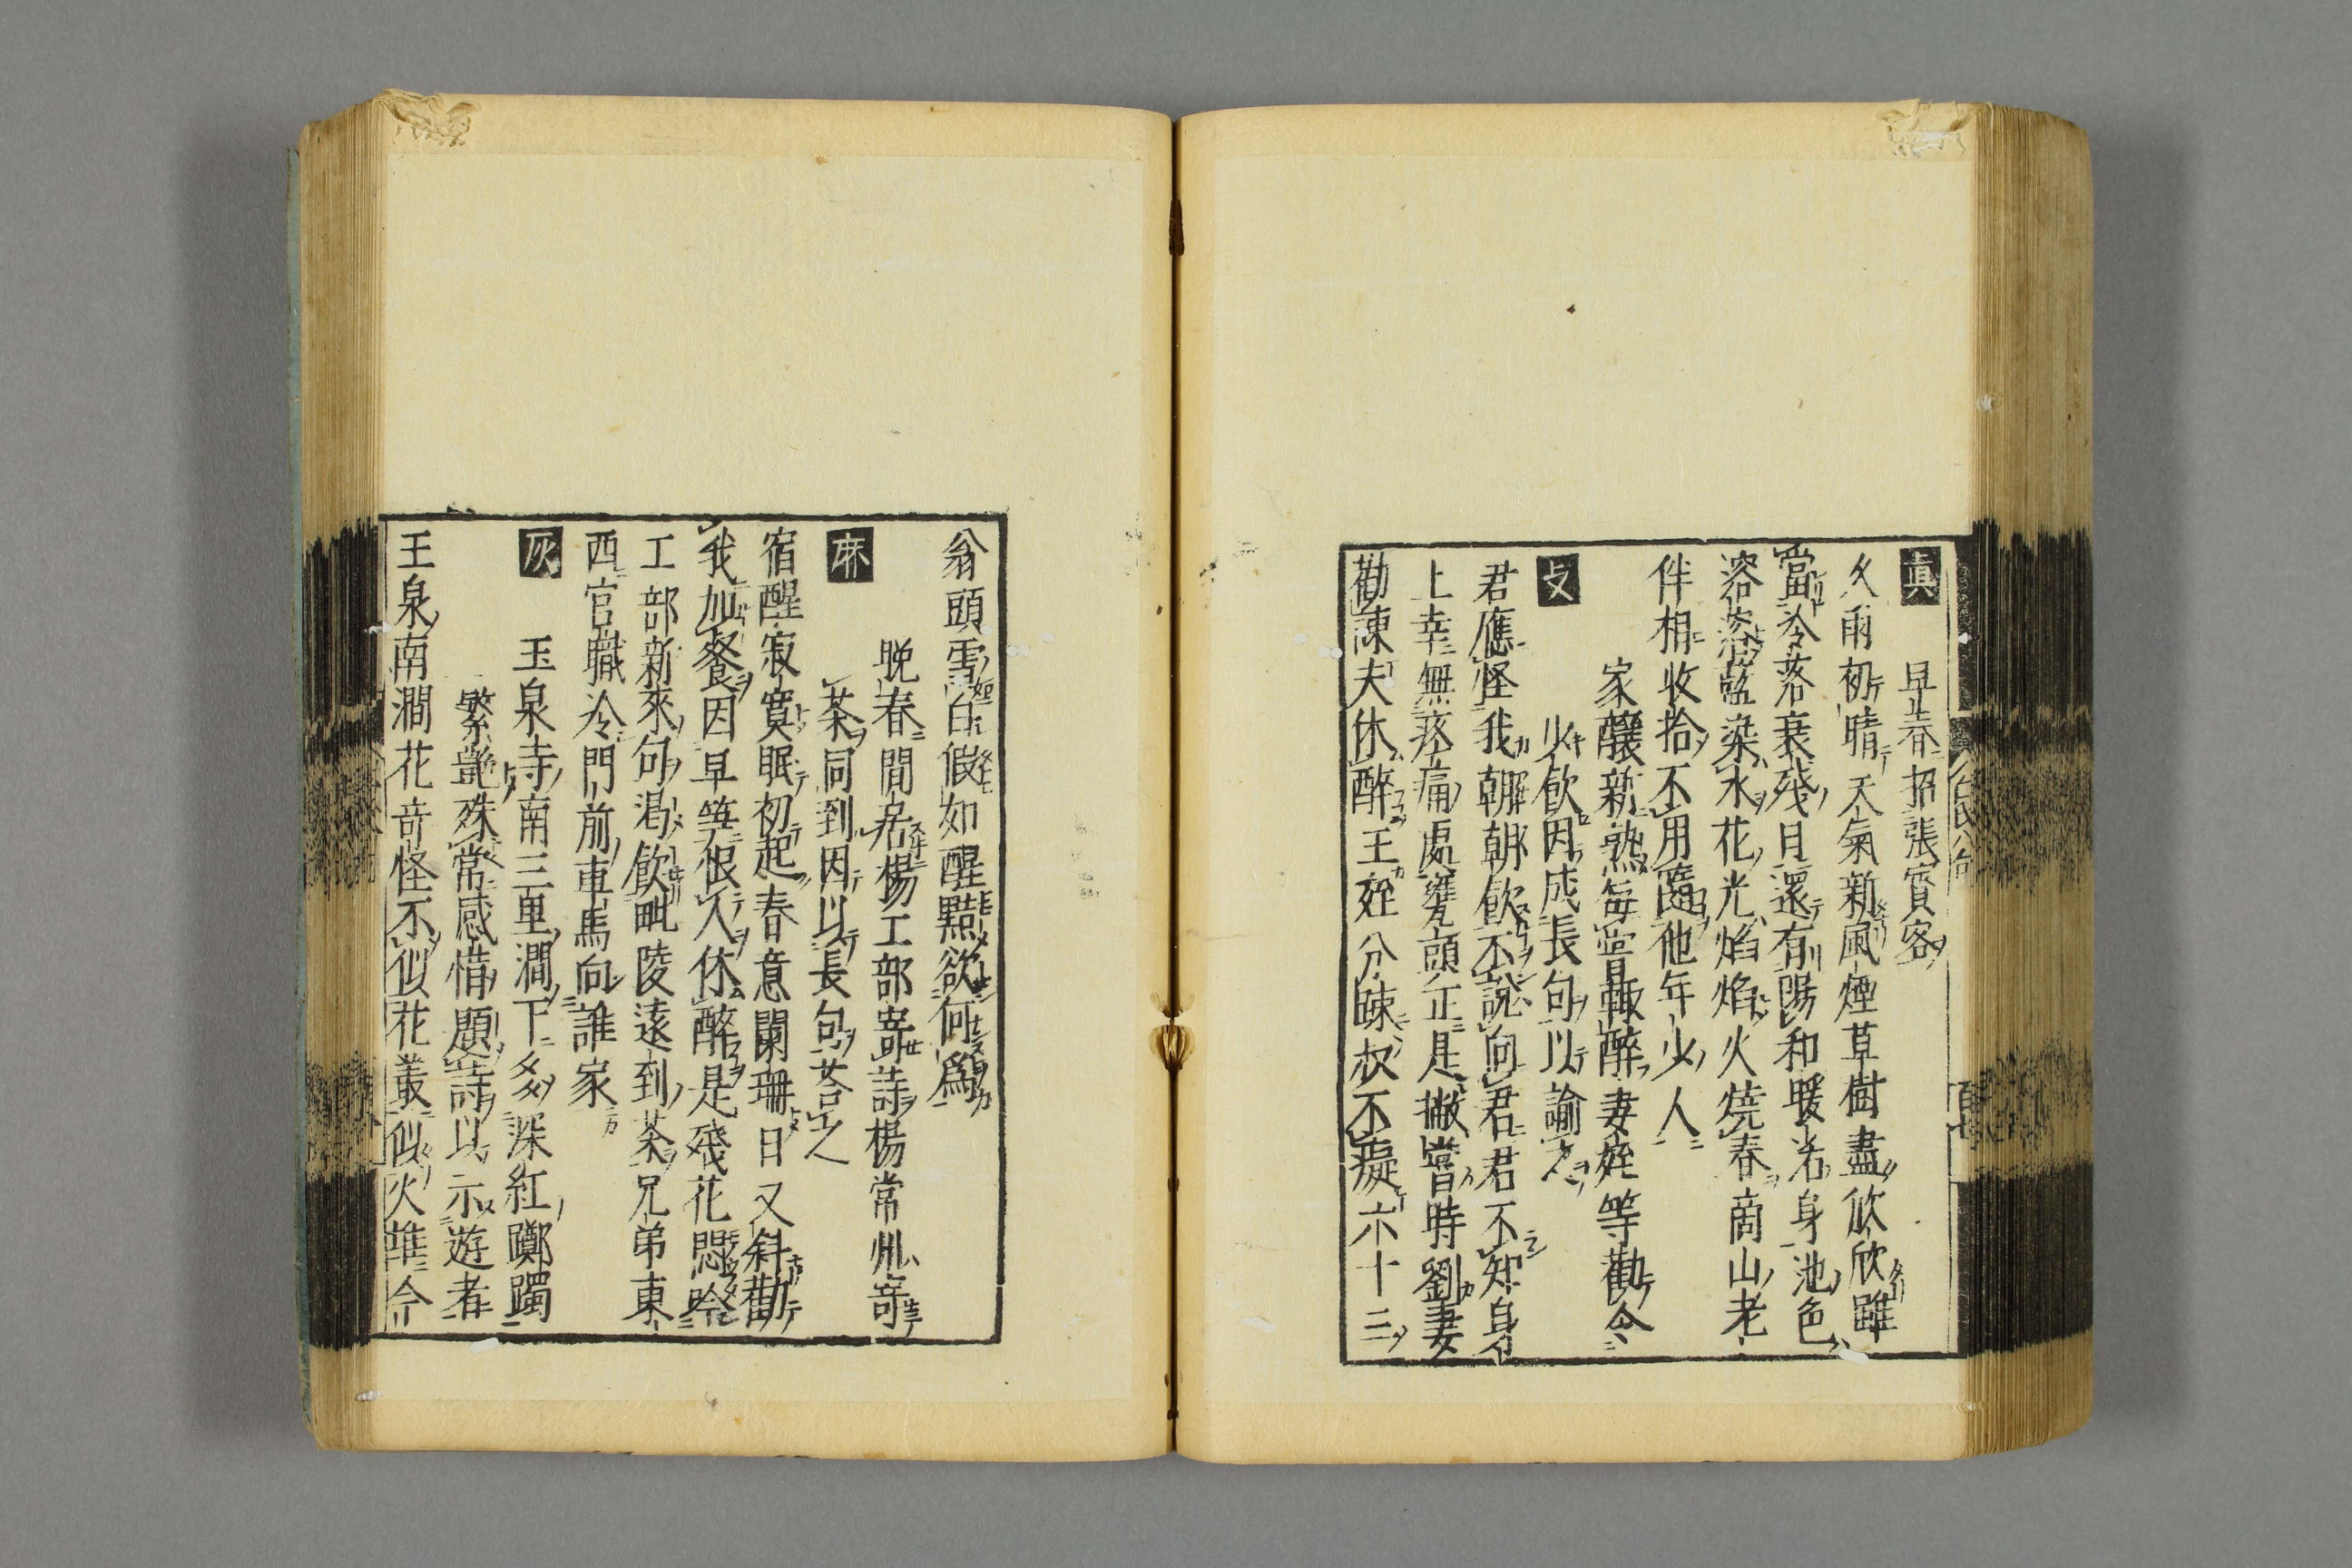 眞
早春招張賓客
久雨初晴天氣新風煙草樹盡欣欣雖
當冷落衰殘日還有陽和暖活身池色
溶溶藍染水花光焰焰火燒春啇山老
伴相收拾不用隨他年少人
家釀新熟每甞輙醉妻姪等勸令
少飲因成長句以諭之
支
君應怪我朝朝飲不說向君君不知身
上幸無疼痛處甕頭正是撇甞時劉妻
勸諫夫休醉王姪分踈叔不癡六十三
翁頭雪白假如醒黠欲何爲
晩春閒居楊工部寄詩楊常州寄
茶同到因以長句荅之
麻
宿醒寂寞眠初起春意闌珊日又斜勸
我加餐因早笋恨人休醉是殘花
工部新來句渇飲毗陵遠到茶兄弟東
西官職冷門前車馬向誰家
灰
玉泉寺南三里澗下多深紅躑躅
繁艶殊常感惜題詩以示遊者
王泉南澗花奇怪不似花叢似火堆今